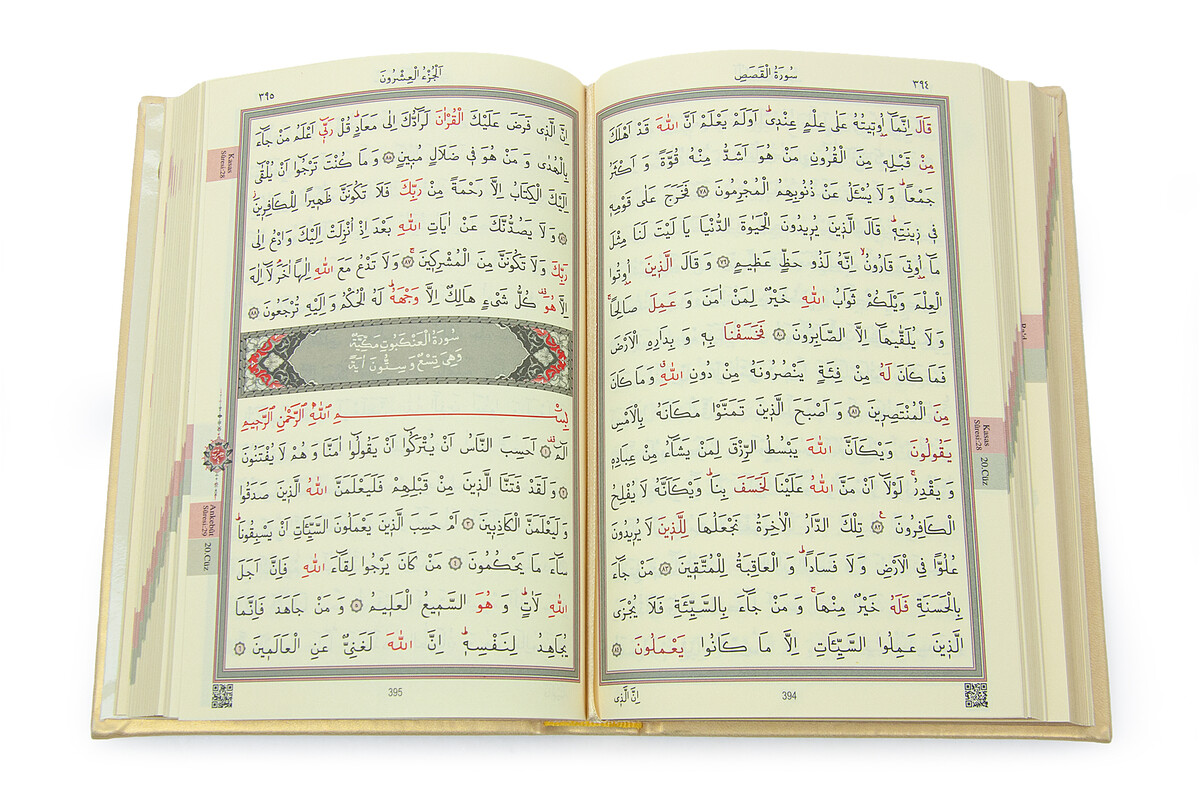 سُورَةُ الْقَصَصِ
٣٩٤
قَالَ اِنَّمَٓا اُو۫ت۪يتُهُ عَلٰى عِلْمٍ عِنْد۪يۜ اَوَلَمْ يَعْلَمْ اَنَّ اللّٰهَ قَدْ اَهْلَكَ
مِنْ قَبْلِه۪ مِنَ الْقُرُونِ مَنْ هُوَ اَشَدُّ مِنْهُ قُوَّةً وَ اَكْثَرُ
جَمْعاًۜ وَ لَا يُسْـَٔلُ عَنْ ذُنُوبِهِمُ الْمُجْرِمُونَ ﴿٧٨﴾ فَخَرَجَ عَلٰى قَوْمِه۪
ف۪ي ز۪ينَتِه۪ۜ قَالَ الَّذ۪ينَ يُر۪يدُونَ الْحَيٰوةَ الدُّنْيَا يَا لَيْتَ لَنَا مِثْلَ
مَٓا اُو۫تِيَ قَارُونُۙ اِنَّهُ لَذُو حَظٍّ عَظ۪يمٍ ﴿٧٩﴾ وَ قَالَ الَّذ۪ينَ اُو۫تُوا
الْعِلْمَ وَيْلَكُمْ ثَوَابُ اللّٰهِ خَيْرٌ لِمَنْ اٰمَنَ وَ عَمِلَ صَالِحاًۚ
وَ لَا يُلَقّٰيهَٓا اِلَّا الصَّابِرُونَ ﴿٨٠﴾ فَخَسَفْنَا بِه۪ وَ بِدَارِهِ الْاَرْضَ
فَمَا كَانَ لَهُ مِنْ فِئَةٍ يَنْصُرُونَهُ مِنْ دُونِ اللّٰهِۗ وَ مَا كَانَ
مِنَ الْمُنْتَصِر۪ينَ ﴿٨١﴾ وَ اَصْبَحَ الَّذ۪ينَ تَمَنَّوْا مَكَانَهُ بِالْاَمْسِ
يَقُولُونَ وَيْكَاَنَّ اللّٰهَ يَبْسُطُ الرِّزْقَ لِمَنْ يَشَٓاءُ مِنْ عِبَادِه۪
وَ يَقْدِرُۚ لَوْلَٓا اَنْ مَنَّ اللّٰهُ عَلَيْنَا لَخَسَفَ بِنَاۜ وَيْكَاَنَّهُ لَا يُفْلِحُ
الْكَافِرُونَ ﴿٨٢﴾ تِلْكَ الدَّارُ الْاٰخِرَةُ نَجْعَلُهَا لِلَّذ۪ينَ لَا يُر۪يدُونَ
عُلُواًّ فِي الْاَرْضِ وَ لَا فَسَاداًۜ وَ الْعَاقِبَةُ لِلْمُتَّق۪ينَ ﴿٨٣﴾ مَنْ جَٓاءَ
بِالْحَسَنَةِ فَلَهُ خَيْرٌ مِنْهَاۚ وَ مَنْ جَٓاءَ بِالسَّيِّئَةِ فَلَا يُجْزَى
الَّذ۪ينَ عَمِلُوا السَّيِّـَٔاتِ اِلَّا مَا كَانُوا يَعْمَلُونَ ﴿٨٤﴾
394
اِنَّ الَّذ۪ي
Kasas
Sûresi:28
20.Cüz
اَلْجُزْءُ الْعِشْرُونَ
٣٩٥
اِنَّ الَّذ۪ي فَرَضَ عَلَيْكَ الْقُرْاٰنَ لَرَٓادُّكَ اِلٰى مَعَادٍۜ قُلْ رَبّ۪ٓي اَعْلَمُ مَنْ جَٓاءَ
بِالْهُدٰى وَ مَنْ هُوَ ف۪ي ضَلَالٍ مُب۪ينٍ ﴿٨٥﴾ وَ مَا كُنْتَ تَرْجُٓوا اَنْ يُلْقٰٓى
اِلَيْكَ الْكِتَابُ اِلَّا رَحْمَةً مِنْ رَبِّكَ فَلَا تَكُونَنَّ ظَه۪يراً لِلْكَافِر۪ينَۘ
﴿٨٦﴾ وَ لَا يَصُدُّنَّكَ عَنْ اٰيَاتِ اللّٰهِ بَعْدَ اِذْ اُنْزِلَتْ اِلَيْكَ وَ ادْعُ اِلٰى
رَبِّكَ وَ لَا تَكُونَنَّ مِنَ الْمُشْرِك۪ينَۚ ﴿٨٧﴾ وَ لَا تَدْعُ مَعَ اللّٰهِ اِلٰهاً اٰخَرَۢ لَٓا اِلٰهَ
اِلَّا هُوَ۠ كُلُّ شَيْءٍ هَالِكٌ اِلَّا وَجْهَهُۜ لَهُ الْحُكْمُ وَ اِلَيْهِ تُرْجَعُونَ ﴿٨٨﴾
سُورَةُ الْعَنْكَبُوتِ مَكِّيَّةٌ
وَهِيَ تِسْعٌ وَ سِتُّونَ اٰيَةً
بِسْمِ اللّٰهِ الرَّحْمٰنِ الرَّح۪يمِ
الٓمٓۚ ﴿١﴾ اَحَسِبَ النَّاسُ اَنْ يُتْرَكُٓوا اَنْ يَقُولُٓوا اٰمَنَّا وَ هُمْ لَا يُفْتَنُونَ
﴿٢﴾ وَ لَقَدْ فَتَنَّا الَّذ۪ينَ مِنْ قَبْلِهِمْ فَلَيَعْلَمَنَّ اللّٰهُ الَّذ۪ينَ صَدَقُوا
وَ لَيَعْلَمَنَّ الْكَاذِب۪ينَ ﴿٣﴾ اَمْ حَسِبَ الَّذ۪ينَ يَعْمَلُونَ السَّيِّـَٔاتِ اَنْ يَسْبِقُونَاۜ
سَٓاءَ مَا يَحْكُمُونَ ﴿٤﴾ مَنْ كَانَ يَرْجُوا لِقَٓاءَ اللّٰهِ فَاِنَّ اَجَلَ
اللّٰهِ لَاٰتٍۜ وَ هُوَ السَّم۪يعُ الْعَل۪يمُ ﴿٥﴾ وَ مَنْ جَاهَدَ فَاِنَّمَا
يُجَاهِدُ لِنَفْسِه۪ۜ اِنَّ اللّٰهَ لَغَنِيٌّ عَنِ الْعَالَم۪ينَ ﴿٦﴾
395
Kasas
Sûresi:28
Ankebût
Sûresi:29
20.Cüz